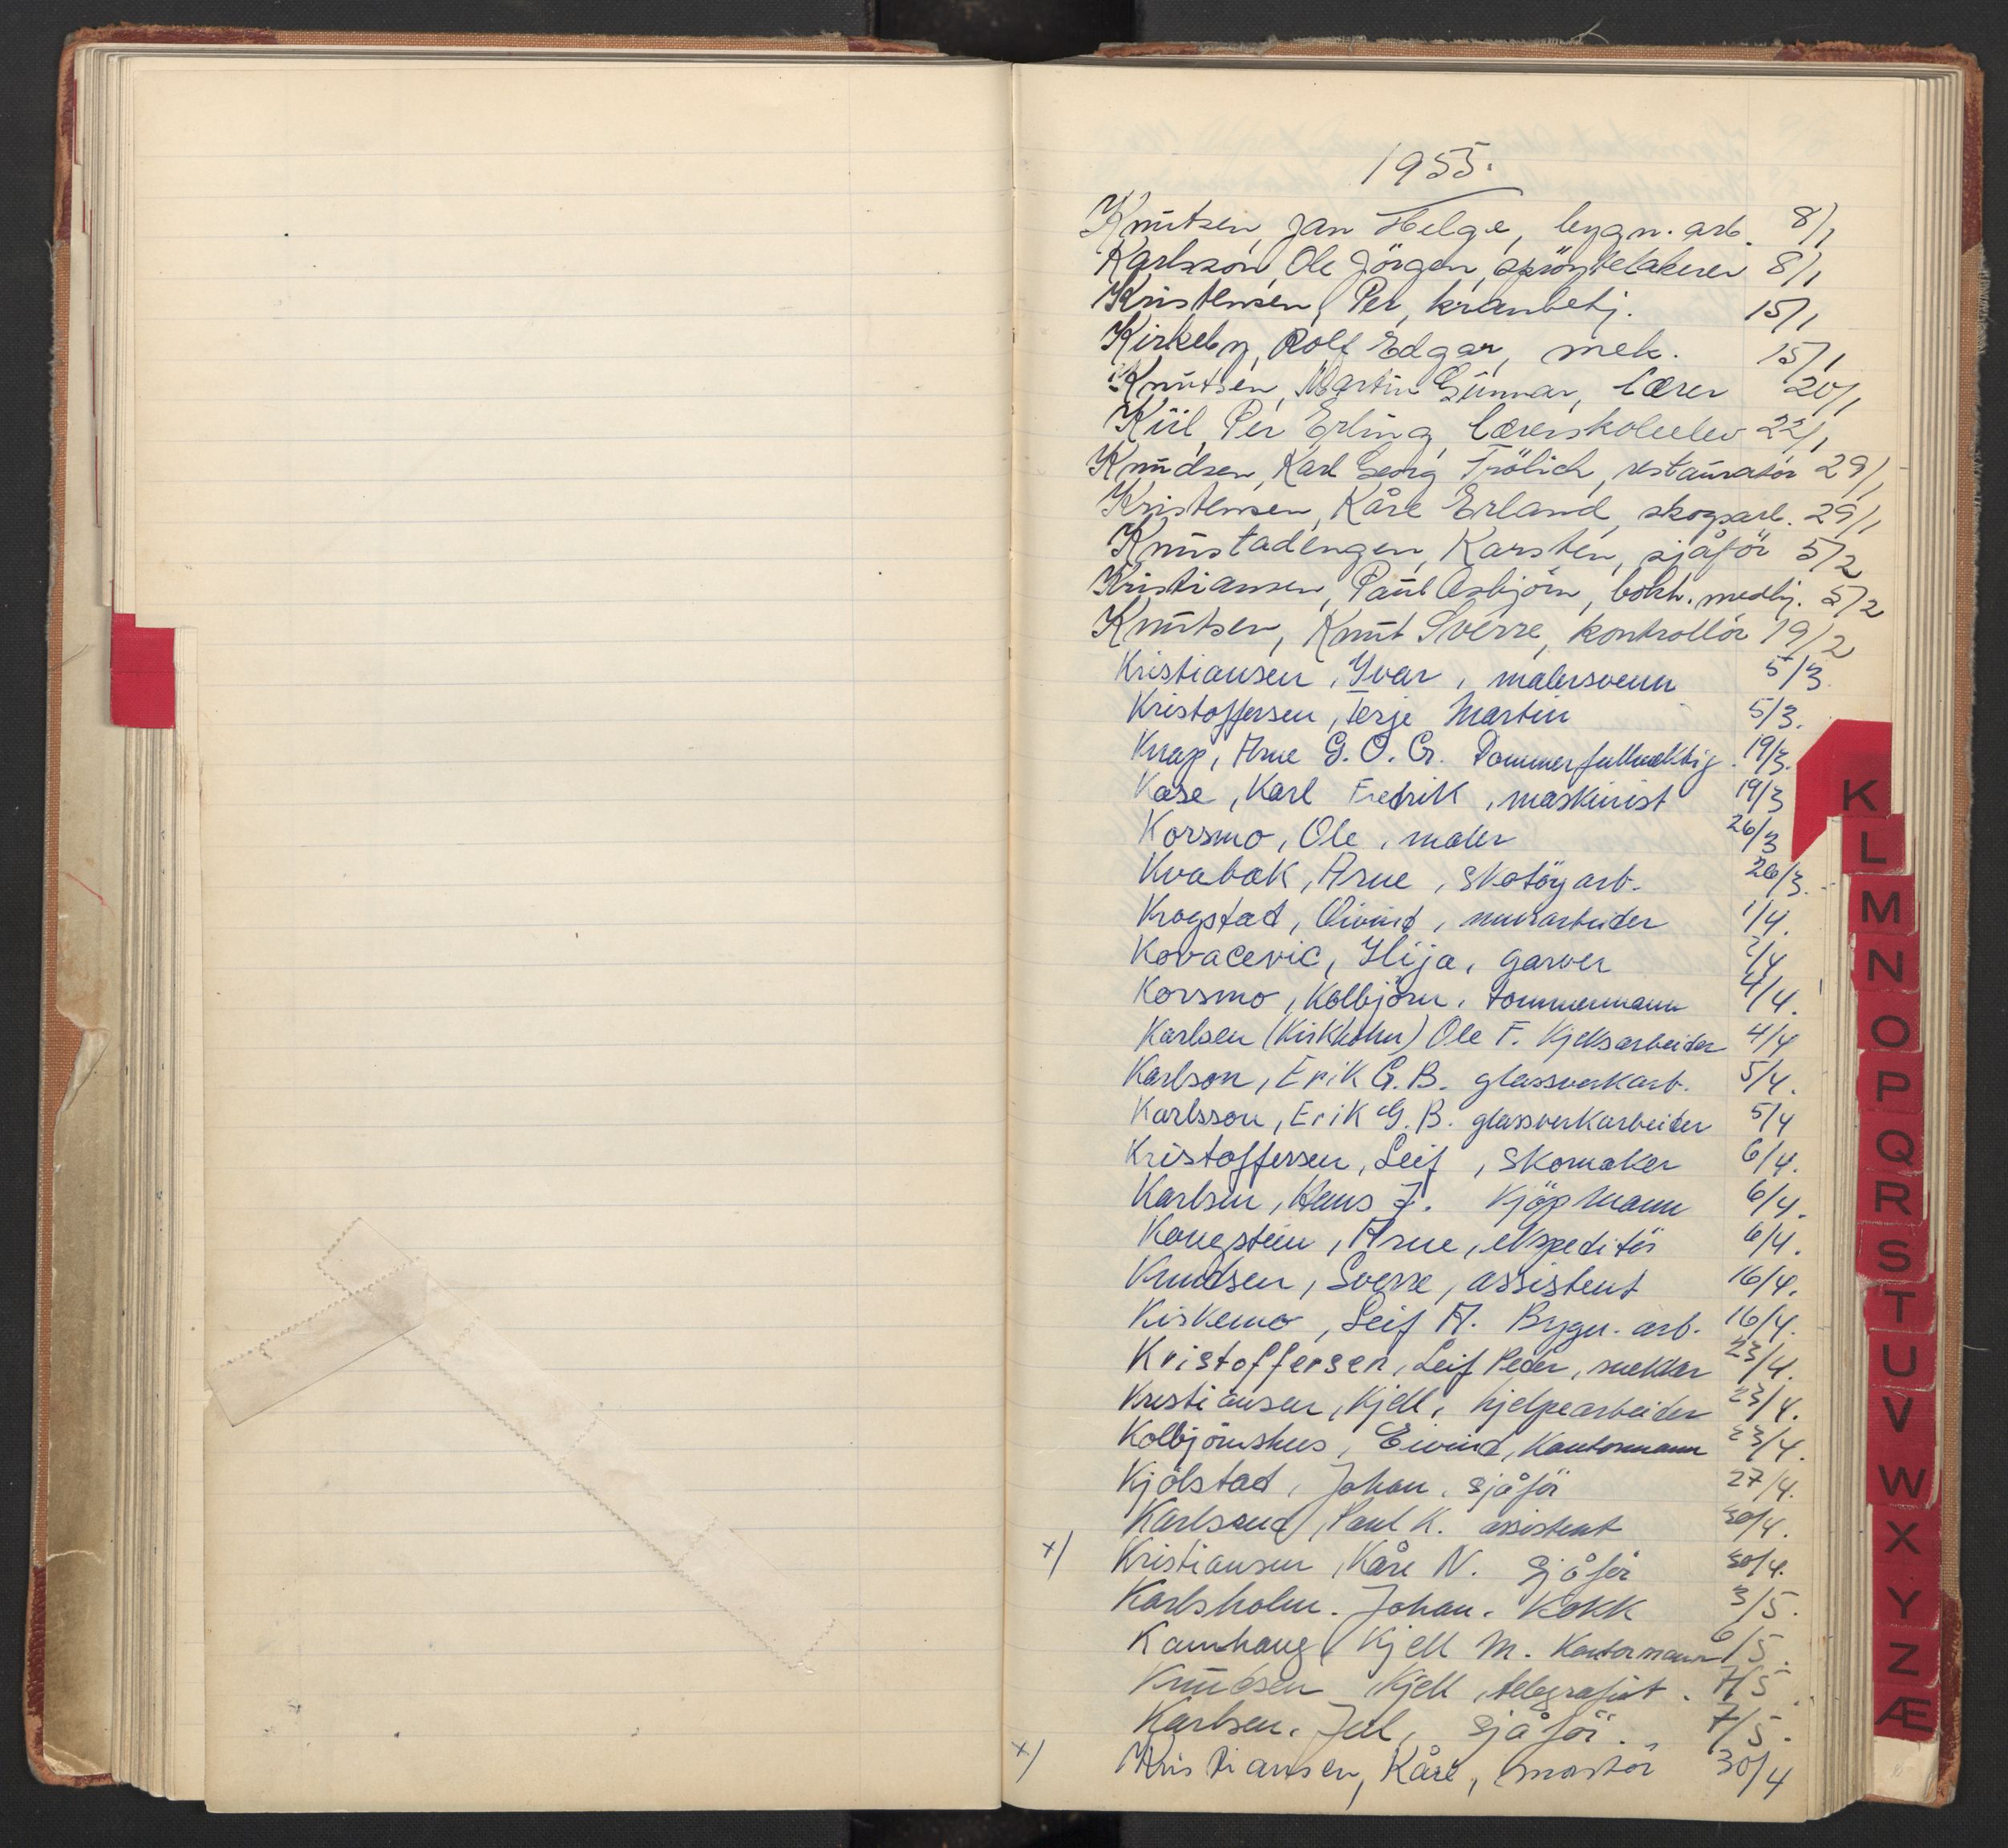 1955.
Knutsen, Jan Helge, bygn. arb. 8/1
Karlsson, Ole Jörgen, spröytelakerer 8/1
Kristensen, Per, kranbetj. 15/1
Kirkeby, Rolf Edgar, mek. 15/1
Knutsen, Martin Gunnar, lærer 20/1
Kiil, Per Erling, lærerskoleelev 22/1
Knudsen, Karl Georg Frölich, restauratör 29/1
Kristensen, Kåre Erland, skogsarb. 29/1
Knustadengen, Karsten, sjåför 5/2
Kristiansen, Paul Asbjörn, bokh. medhj. 5/2
Knutsen, Knut Sverre, kontrollör 19/2
Kristiansen, Yvar, malersvenn 5/3.
Kristoffersen, Terje Martin 5/3.
Knap, Arne G.O. Gr. Dommerfullmektig. 19/3.
Kase, Karl Fredrik, maskinist 19/3
Korsmo, Ole, maler 26/3
Kvabæk, Arne, skotöyarb. 26/3.
Krogstad, Oivind, murarbeider 1/4.
Kovacevic, Ilija, garver 2/4
Korsmo, Kolbjörn, tömmermann 4/4.
Karlsen (Kirkholm) Ole F. Kjeksarbeider 4/4
Karlson, Erik G.B. glassverkarb. 5/4.
Karlsson, Erik G.B. glassverkarbeider 5/4
Kristoffersen, Leif, Skomaker 6/4.
Karlsen, Hans J. Kjöpmann 6/4.
Kongstein, Arne, ekspeditör 6/4.
Knudsen, Sverre, assistent 16/4.
Kiskemo, Leif A. Bygn. arb. 16/4.
Kristoffersen, Leif Peder, mekler 23/4.
Kristiansen, Kjell, hjelpearbeider 23/4.
Kolbjörnshus, Eivind, Kontormann 23/4.
Kjölstad, Johan, sjåför 27/4.
Karlsrud, Paul K. assistent 30/4.
x) Kristiansen, Kåre N. Sjåför 30/4.
Karlsholm. Johan. Kokk 3/5.
Kamhaug, Kjell M. Kontormann 6/5.
Knudsen Kjell, telegrafist. 7/5.
Karlsen. Juel, sjåför. 7/5.
x) Kristiansen, Kåre, montör 30/4
K
L
M
N
O
P
Q
R
S
T
U
V
W
X
Y
Z
Æ